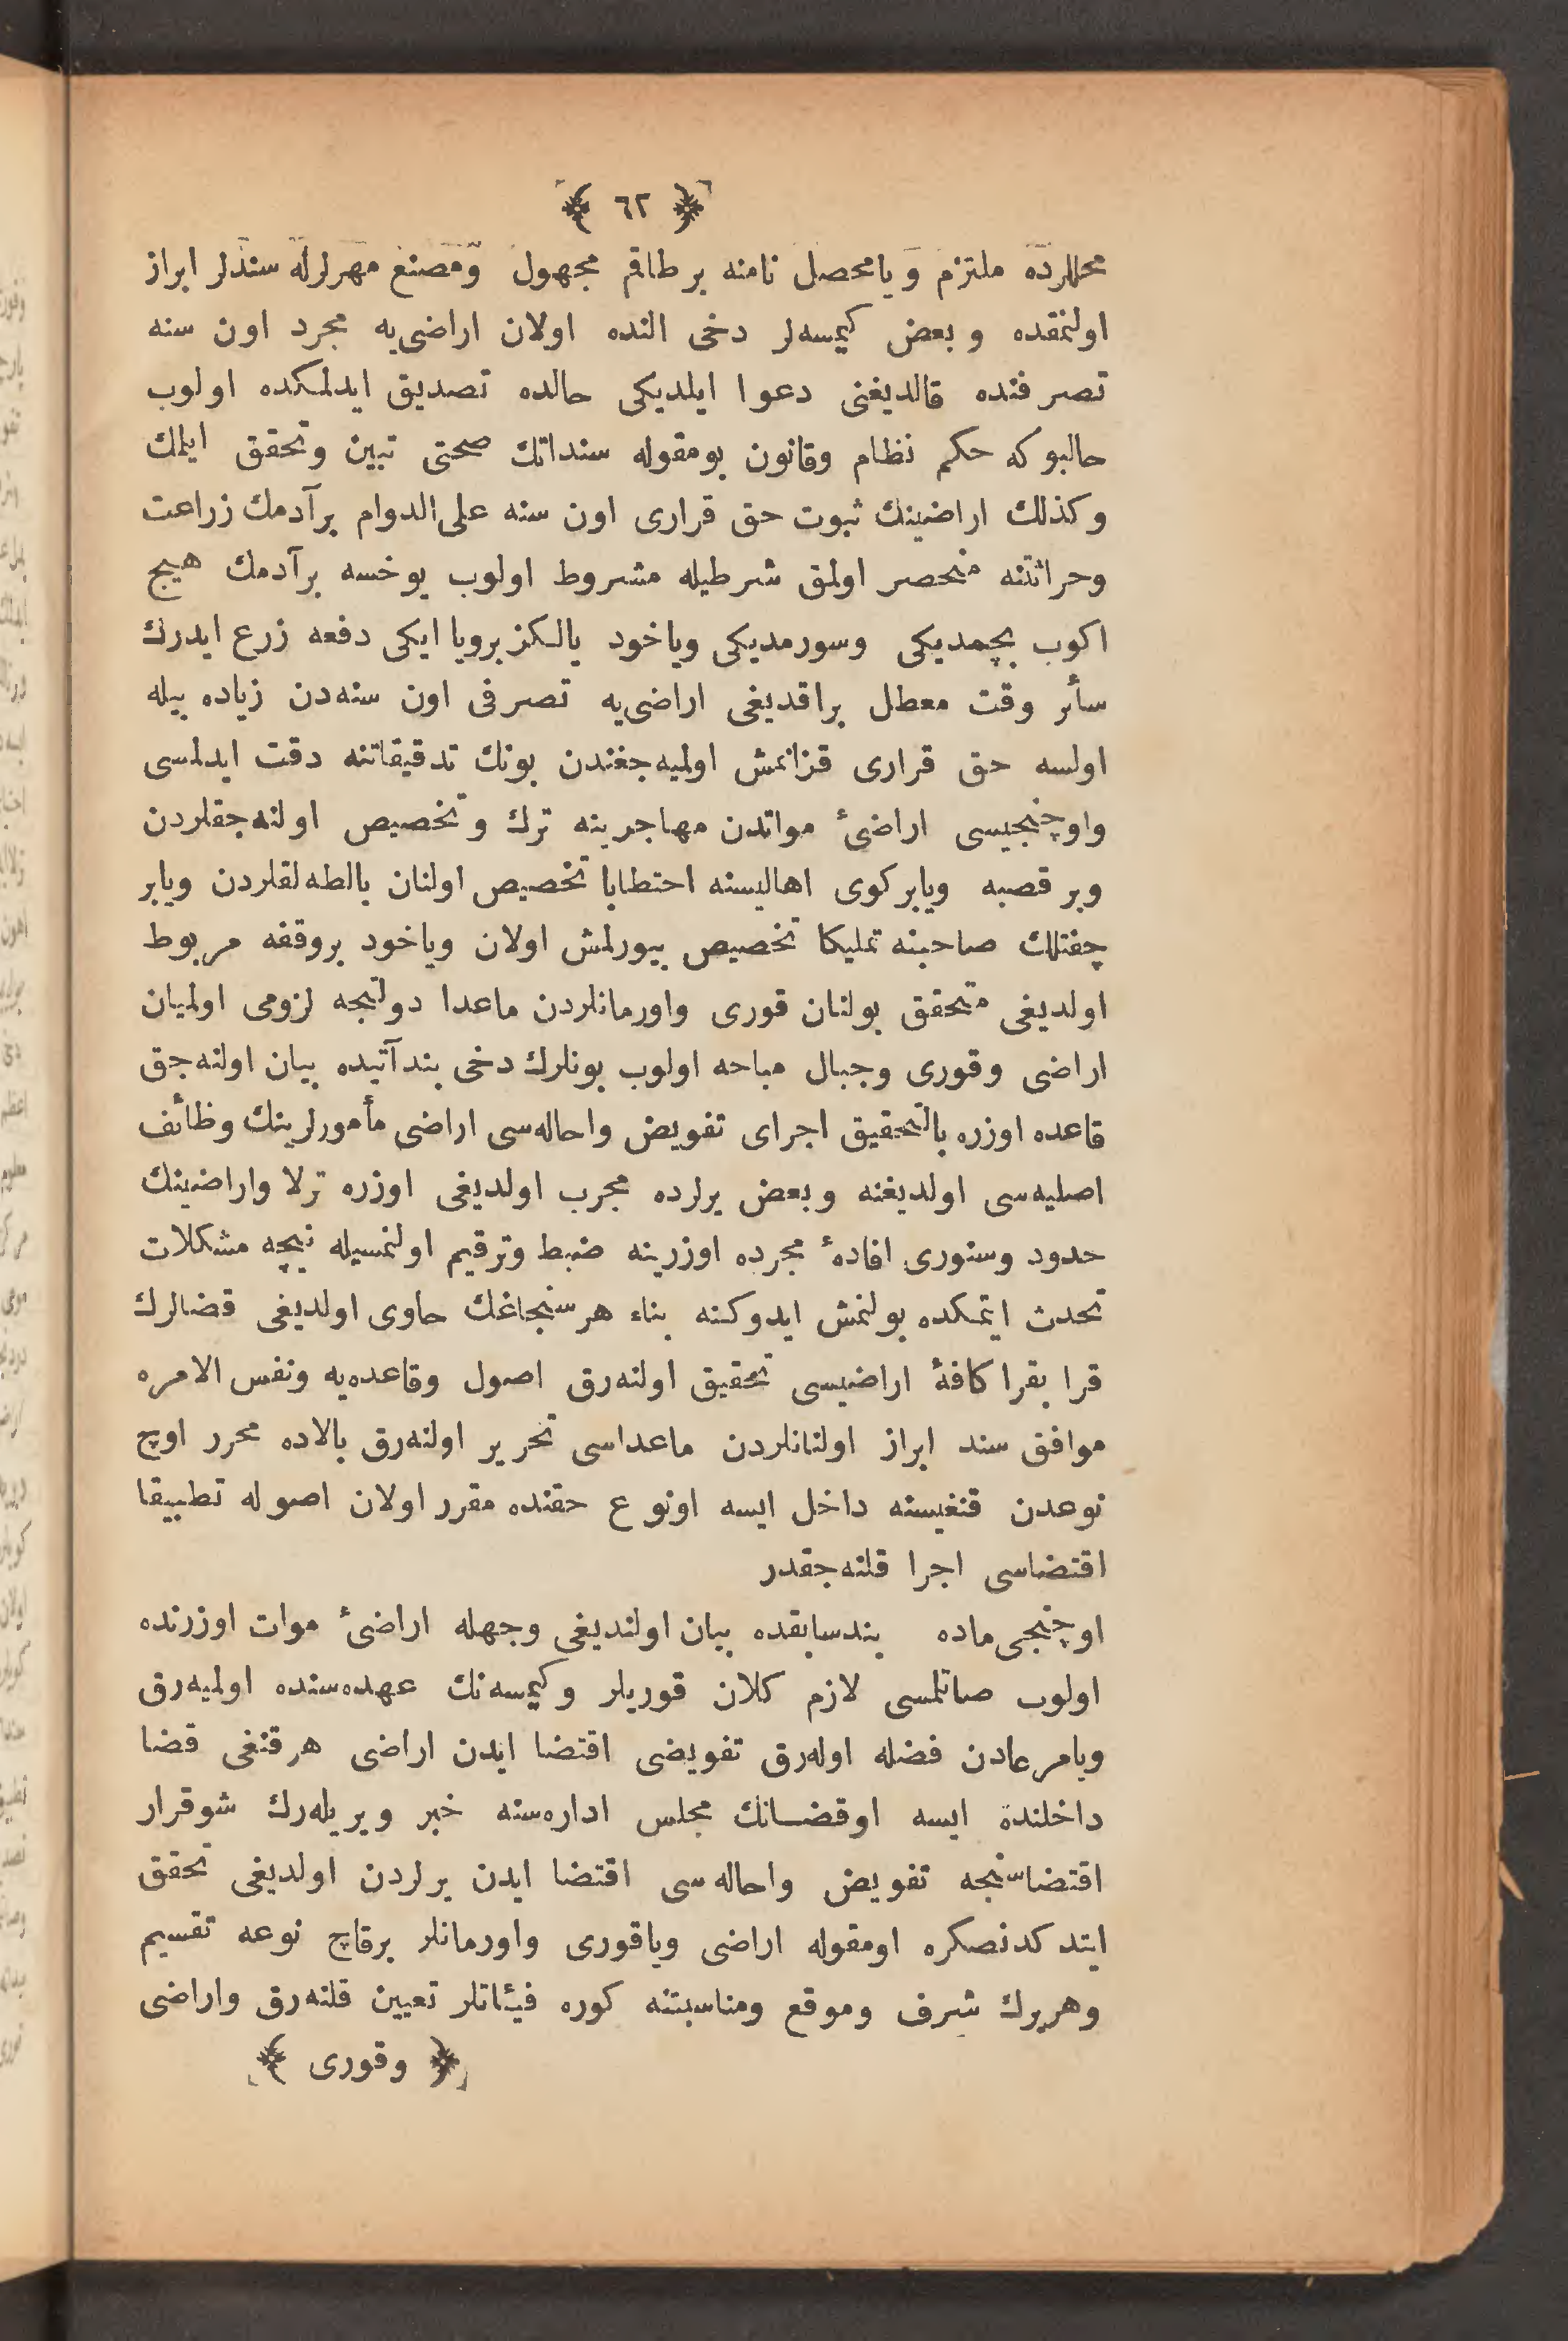 ﴿ ٦٢ ﴾
محللرده ملتزم ویامحصل نامنه برطاقم مجهول ومصنع مهرلرله سندلر ابراز
اولنمقده وبعض كیمسه‌لر دخی النده اولان اراضی‌یه مجرد اون سنه
تصرفنده قالدیغنی دعوا ایلدیكی حالده تصدیق ایدلمكده اولوب
حالبوكه حكم نظام وقانون بومقوله سنداتك صحتی تبین وتحقق ایلمك
وكذلك اراضینك ثبوت حق قراری اون سنه علی‌الدوام برآدمك زراعت
وحراثتنه منحصر اولمق شرطیله مشروط اولوب یوخسه برآدمك هیچ
اكوب بچمدیكی وسورمدیكی ویاخود یالكز برویا ایكی دفعه زرع ایدرك
سأر وقت معطل براقدیغی اراضی‌یه تصرفی اون سنه‌دن زیاده بیله
اولسه حق قراری قزانمش اولمیه‌جغندن بونك تدقیقاتنه دقت ایدلسی
واوچنجیسی اراضیٔ مواتدن مهاجرینه ترك وتخصیص اولنه‌جقلردن
وبر قصبه ویابركوی اهالیسنه احتطابا تخصیص اولنان بالطه‌لقلردن ویابر
چفتلك صاحبنه تملیكا تخصیص بیورلمش اولان ویاخود بروقفه مربوط
اولدیغی متحقق بولنان قوری واورمانلردن ماعدا دولتجه لزومی اولمیان
اراضی وقوری وجبال مباحه اولوب بونلرك دخی بندآتیده بیان اولنه‌جق
قاعده اوزره بالتحقیق اجرای تفویض واحاله‌سی اراضی مأمورلرینك وظائف
اصلیه‌سی اولدیغنه وبعض یرلرده مجرب اولدیغی اوزره ترلا واراضینك
حدود وسنوری افادهٔ مجرده اوزرینه ضبط وترقیم اولنمسیله نیچه مشكلات
تحدث ایتمكده بولنمش ایدوكنه بناء هرسنجاغك حاوی اولدیغی قضالرك
قرا بقرا كافهٔ اراضیسی تحقیق اولنه‌رق اصول وقاعده‌یه ونفس الامره
موافق سند ابراز اولنانلردن ماعداسی تحریر اولنه‌رق بالاده محرر اوچ
نوعدن قنغیسنه داخل ایسه اونوع حقنده مقرر اولان اصوله تطبیقا
اقتضاسی اجرا قلنه‌جقدر
اوچنجی‌ماده بندسابقده بیان اولندیغی وجهله اراضیٔ موات اوزرنده
اولوب صاتلمسی لازم كلان قوریلر وكیمسه‌نك عهده‌سنده اولمیه‌رق
ویامرعادن فضله اوله‌رق تفویضی اقتضا ایدن اراضی هرقنغی قضا
داخلندة ایسه اوقضانك مجلس اداره‌سنه خبر ویریله‌رك شوقرار
اقتضاسنجه تفویض واحاله‌سی اقتضا ایدن یرلردن اولدیغی تحقق
ایتدكدنصكره اومقوله اراضی ویاقوری واورمانلر برقاچ نوعه تقسیم
وهربرك شرف وموقع ومناسبتنه كوره فیئاتلر تعیین قلنه‌رق واراضی
﴿ وقوری ﴾